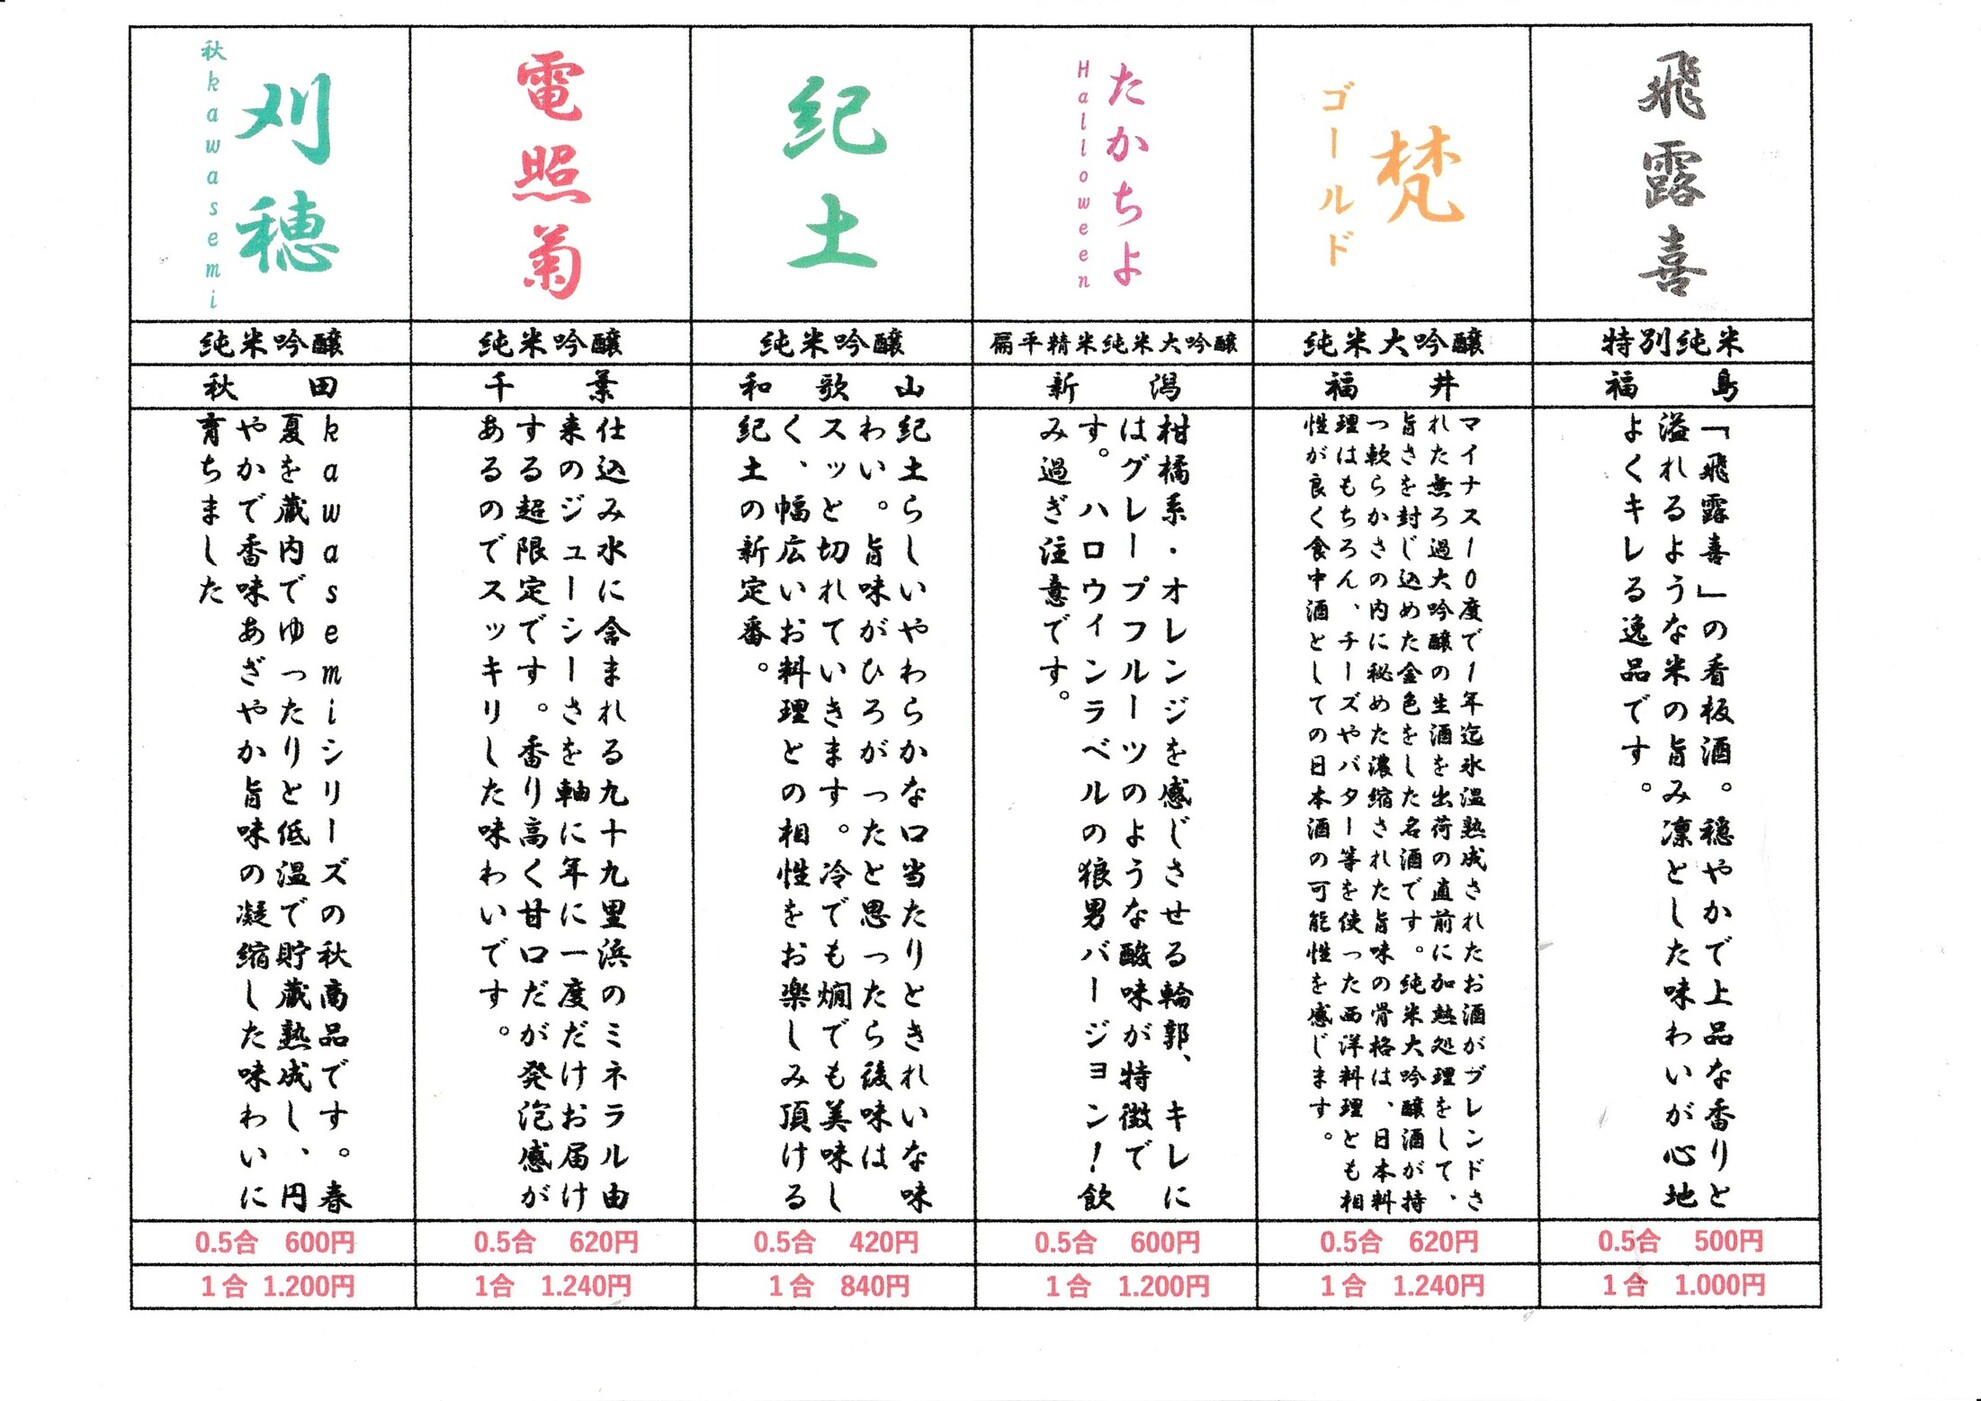 飛露喜
特別純米
福島
「飛露喜」の看板酒。穏やかで上品な香りと
溢れるような米の旨み凛とした味わいが心地
よくキレる逸品です。
0.5合 500円
1合 1.000円
梵
ゴールド
純米大吟醸
福井
マイナス10度で1年迄氷温熟成されたお酒がブレンドさ
れた無ろ過大吟醸の生酒を出荷の直前に加熱処理をして、
旨さを封じ込めた金色をした名酒です。純米大吟醸酒が持
つ軟らかさの内に秘めた濃縮された旨味の骨格は、日本料
理はもちろん、チーズやバター等を使った西洋料理とも相
性が良く食中酒としての日本酒の可能性を感じます。
0.5合 620円
1合 1.240円
たかちよ
Halloween
扁平精米純米大吟醸
新潟
柑橘系・オレンジを感じさせる輪郭、キレに
はグレープフルーツのような酸味が特徴で
す。ハロウィンラベルの狼男バージョン！飲
み過ぎ注意です。
0.5合 600円
1合 1.200円
紀土
純米吟醸
和歌山
紀土らしいやわらかな口当たりときれいな味
わい。旨味がひろがったと思ったら後味は
スッと切れていきます。冷でも燗でも美味し
く、幅広いお料理との相性をお楽しみ頂ける
紀土の新定番。
0.5合 420円
1合 840円
電照菊
純米吟醸
千葉
仕込み水に含まれる九十九里浜のミネラル由
来のジューシーさを軸に年に一度だけお届け
する超限定です。香り高く甘口だが発泡感が
あるのでスッキリした味わいです。
0.5合 620円
1合 1.240円
刈穂
秋kawasemi
純米吟醸
秋田
kawasemiシリーズの秋商品です。春
夏を蔵内でゆったりと低温で貯蔵熟成し、円
やかで香味あざやか旨味の凝縮した味わいに
育ちました
0.5合 600円
1合 1.200円